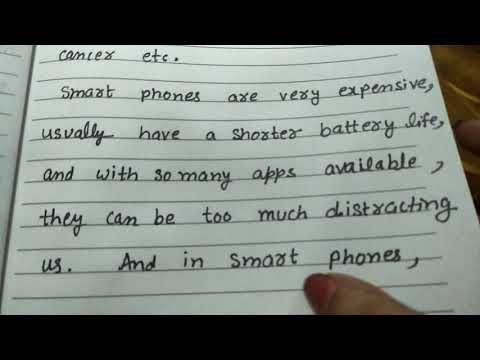 cancer etc.
Smart phones are very expensive,
usually have a shorter battery life,
and with so many apps available,
they can be too much distracting
us. And in smart phones,